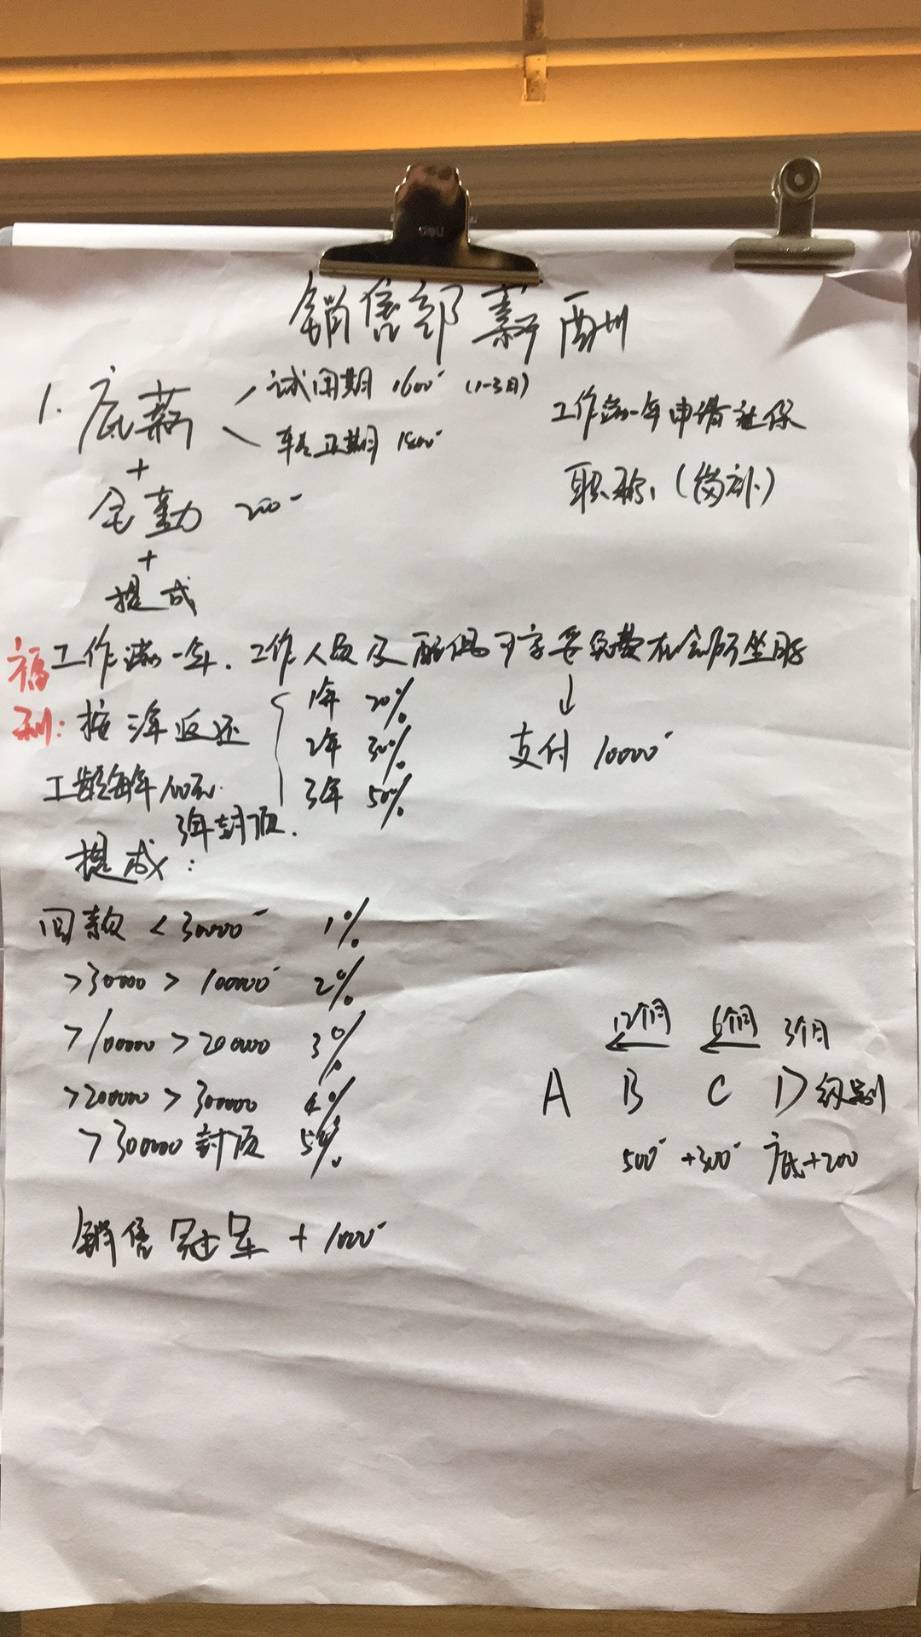 销售部薪酬
1. 底薪 试用期 1600 (1-3月)
转正期月 1800
工作满一年申请社保
职称 (岗补)
+
全勤 200
+
提成
福利:
工作满一年.工作人员及配偶可享受免费在会所坐月子
↓
支付 10000
按三年返还
1年 20%
2年 30%
3年 50%
工龄每年100元.
3年封顶.
提成:
回款 <30000 1%
>30000 > 100000 2%
>100000 > 200000 3%
>200000 > 300000 4%
>300000 封顶 5%
12个月 6个月 3个月
A B C D级别
500 +300 底+200
销售冠军 + 1000